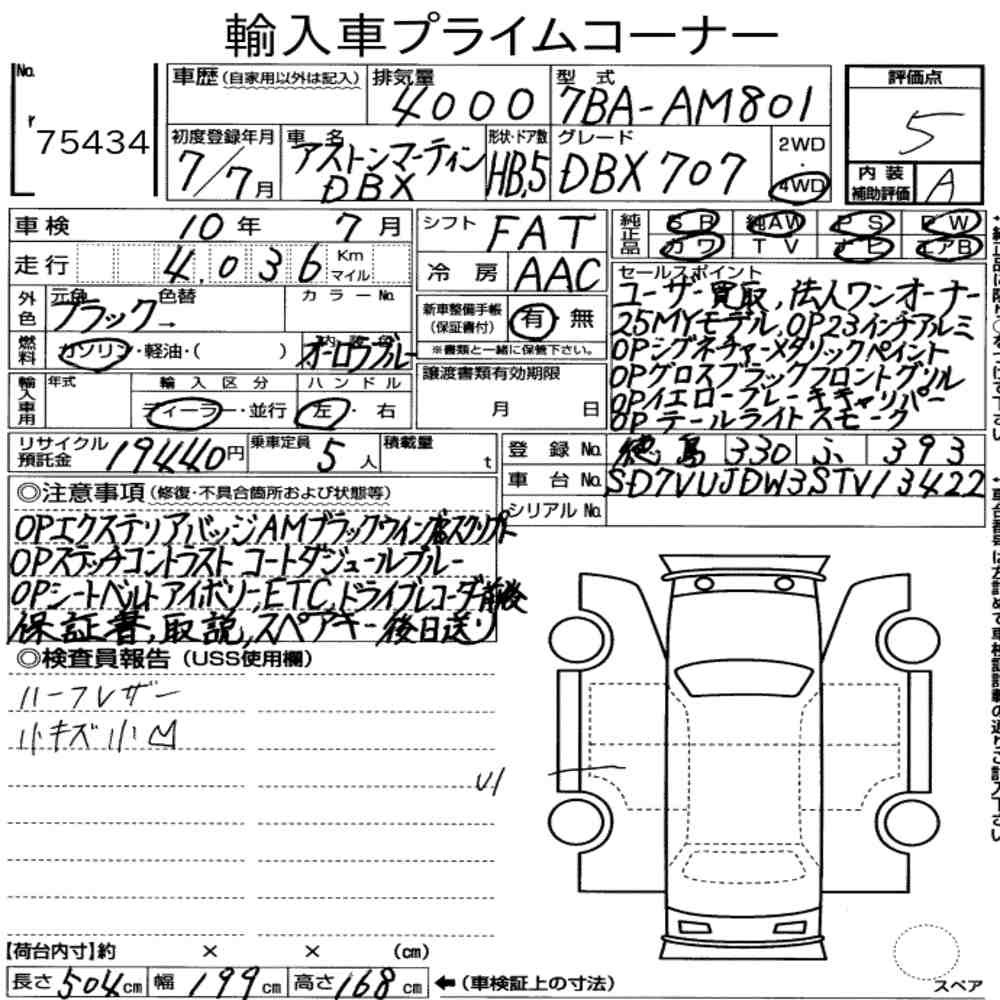 輸入車プライムコーナー
No.
75434
車歴 (自家用以外は記入)
排気量
4000
型式
7BA-AM801
評価点
5
初度登録年月
7/7月
車名
アストンマーティン
DBX
形状・ドア数
HB,5
グレード
DBX 707
2WD
・
4WD
内装
補助評価
A
車検 10年 7月
シフト FAT
純正品
SR 純AW PS PW
カワ TV ナビ エアB
走行 4,036 Km マイル
冷房 AAC
セールスポイント
ユーザー買取, 法人ワンオーナー
25MYモデル, OP23インチアルミ
OPシグネチャーメタリックペイント
OPグロスブラックフロントグリル
OPイエローブレーキキャリパー
OPテールライトスモーク
外色
元色 色替
ブラック→
カラーNo.
新車整備手帳
(保証書付)
有 無
※書類と一緒に保管下さい。
燃料
ガソリン・軽油・( )
オーロラブルー
輸入車用
年式
輸入区分
ディーラー・並行
ハンドル
左・右
譲渡書類有効期限
月 日
リサイクル
預託金
19440円
乗車定員
5人
積載量
t
登録No. 徳島 330 ふ 393
車台No. SD7VUJDW3STV13422
シリアルNo.
◎注意事項 (修復・不具合箇所および状態等)
OPエクステリアバッジAMブラックウイング&スクリプト
OPステッチコントラスト コートダジュールブルー
OPシートベルトアイボリー, ETC, ドライブレコーダ前後
保証書, 取説, スペアキー後日送り
◎検査員報告 (USS使用欄)
ハーフレザー
小キズ小凹
U1
【荷台内寸】約 × × (cm)
長さ 504cm 幅 199cm 高さ 168cm
←(車検証上の寸法)
スペア